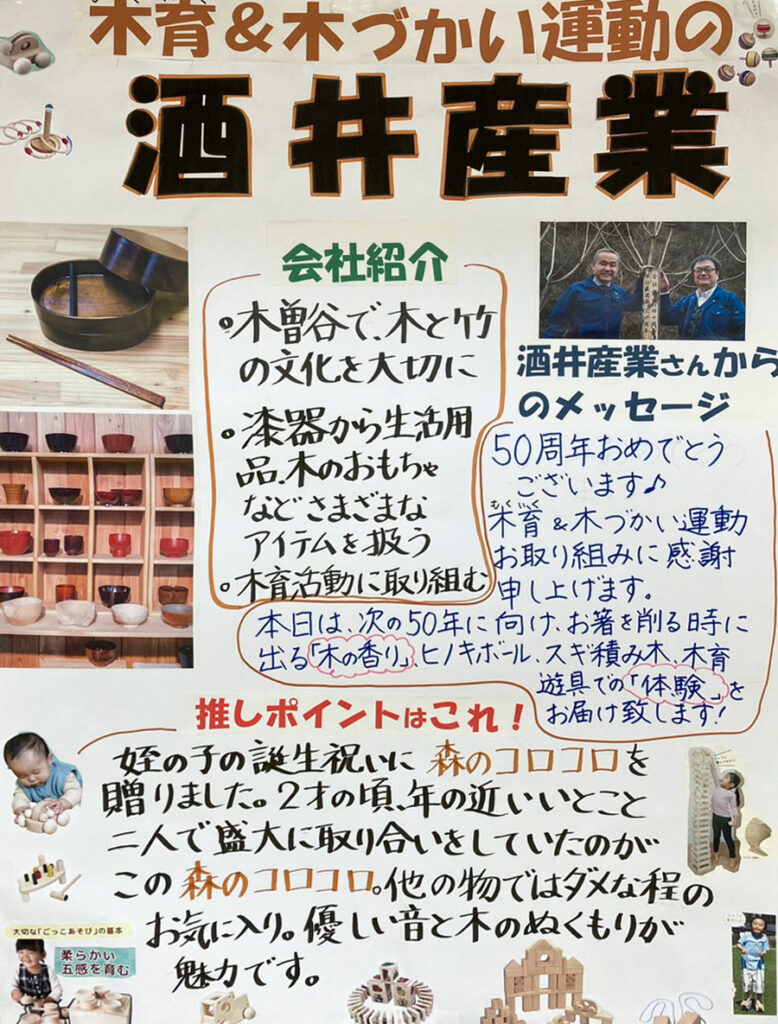 木育&木づかい運動の
酒井産業
会社紹介
。木曽谷で、木と竹
の文化を大切に
。漆器から生活用
品、木のおもちゃ
などさまざまな
アイテムを扱う
。木育活動に取り組む
酒井産業さんから
のメッセージ
50周年おめでとう
ございます♪
もくいく
木育&木づかい運動
お取り組みに感謝
申し上げます。
本日は、次の50年に向け、お箸を削る時に
出る「木の香り」、ヒノキボール、スギ積み木、木育
遊具での「体験」を
お届け致します!
推しポイントはこれ!
姪の子の誕生祝いに 森のコロコロを
贈りました。2才の頃、年の近いいとこと
二人で盛大に取り合いをしていたのが
この 森のコロコロ。他の物ではダメな程の
お気に入り。優しい音と木のぬくもりが
魅力です。
大切な「ごっこあそび」の基本
柔らかい
五感を育む